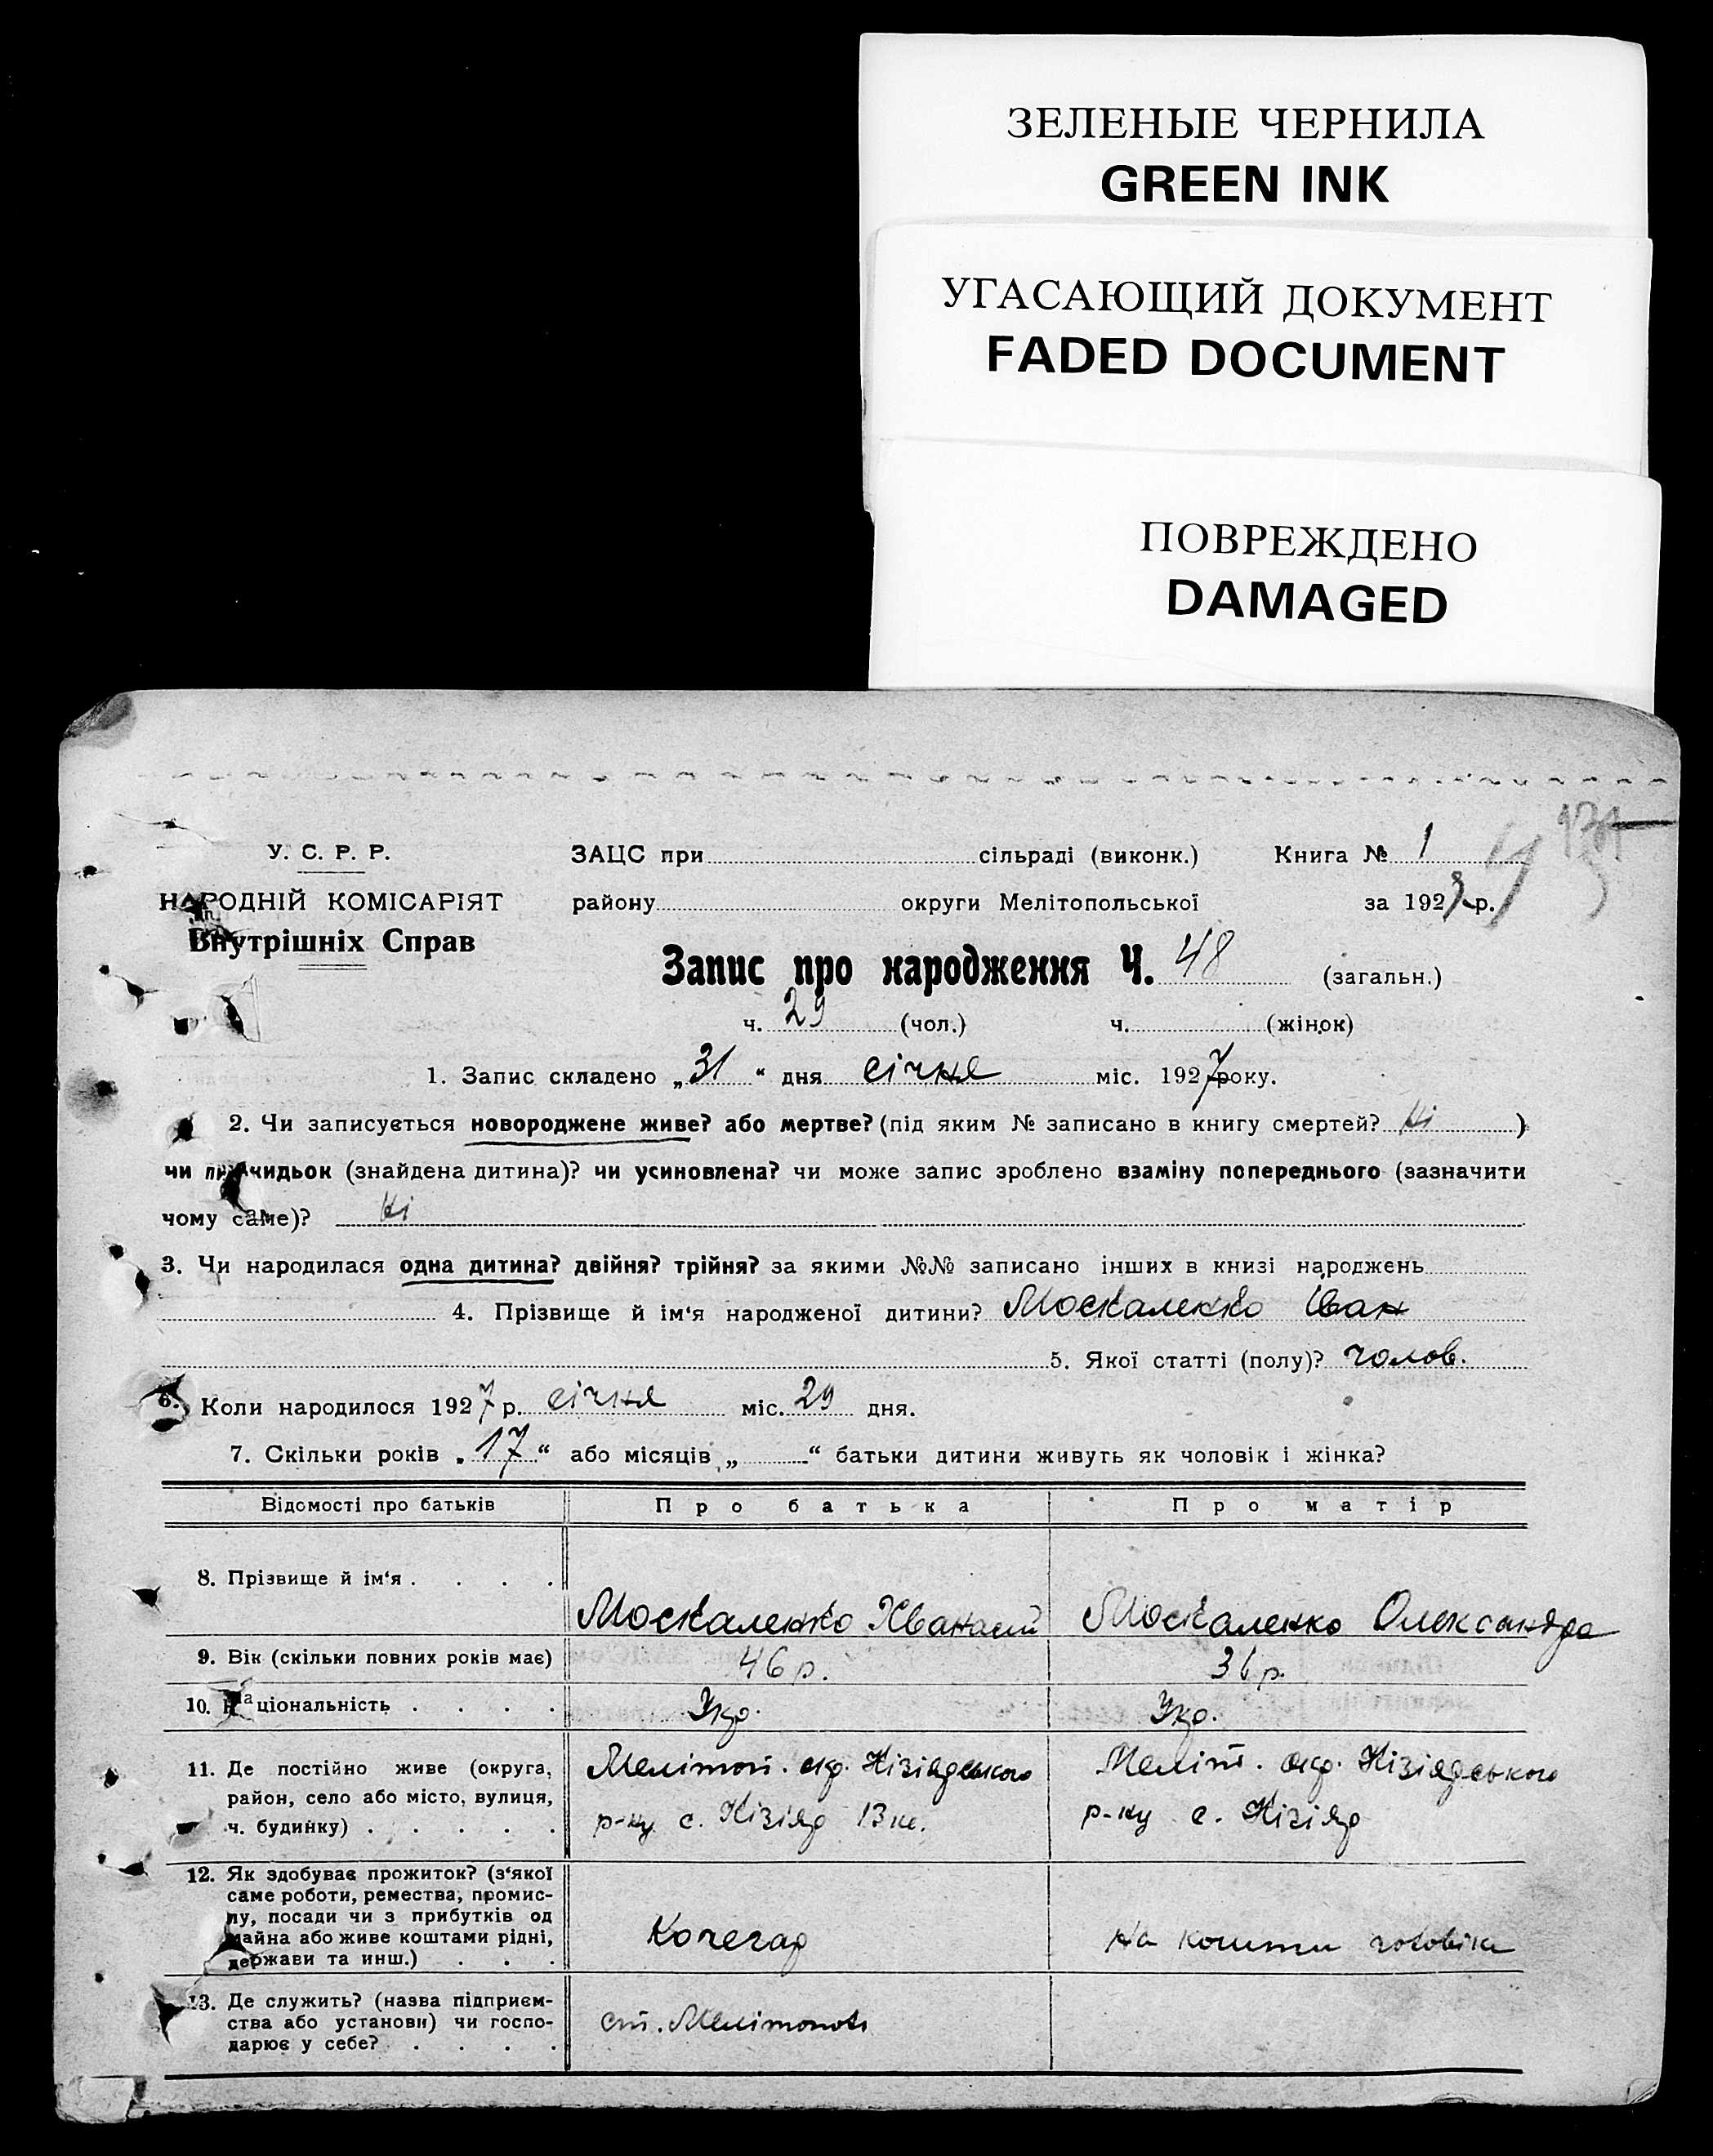 ЗЕЛЕНЫЕ ЧЕРНИЛА
GREEN INK
УГАСАЮЩИЙ ДОКУМЕНТ
FADED DOCUMENT
ПОВРЕЖДЕНО
DAMAGED
У. С. Р. Р.
НАРОДНІЙ КОМІСАРІЯТ
Внутрішніх Справ
ЗАЦС при сільраді (виконк.) Книга № 1
району округи Мелітопольської за 1927 р.
Запис про народження Ч. 48 (загальн.)
ч. 29 (чол.) ч. (жінок)
1. Запис складено „31“ дня січня міс. 1927 року.
2. Чи записується новороджене живе? або мертве? (під яким № записано в книгу смертей? Ні )
чи підкидьок (знайдена дитина)? чи усиновлена? чи може запис зроблено взаміну попереднього (зазначити
чому саме)? Ні
3. Чи народилася одна дитина? двійня? трійня? за якими №№ записано інших в книзі народжень
4. Прізвище й ім‘я народженої дитини? Москаленко Іван
5. Якої статті (полу)? чолов.
6. Коли народилося 1927 р. січня міс. 29 дня.
7. Скільки років „17“ або місяців „ “ батьки дитини живуть як чоловік і жінка?
Відомості про батьків Про батька Про матір
8. Прізвище й ім‘я . . . . Москаленко Хванасій Москаленко Олександра
9. Вік (скільки повних років має) 46 р. 36 р.
10. Національність . . . . Укр. Укр.
11. Де постійно живе (округа,
район, село або місто, вулиця,
ч. будинку) . . . . .
Мелітоп. окр. Кізіярського
р-ну с. Кізіяр
Меліт. окр. Кізіярського
р-ну с. Кізіяр
12. Як здобуває прожиток? (з‘якої
саме роботи, ремества, промис-
лу, посади чи з прибутків од
майна або живе коштами рідні,
держави та инш.) . . .
Кочегар
на кошти чоловіка
13. Де служить? (назва підприєм-
ства або установи) чи госпо-
дарює у себе? . . . .
ст. Мелітополь